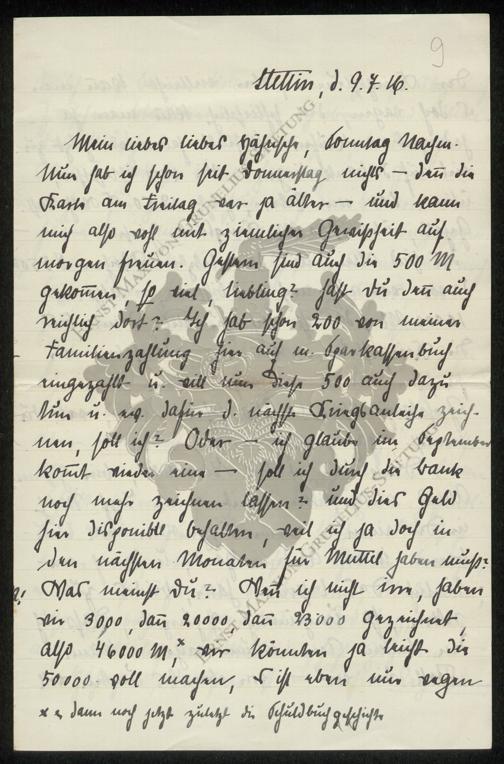 9
Stettin, d. 9.7.16.
Mein liebes liebes, Sonntag Nachm.
Nun hab ich schon seit Donnerstag nichts – den̄ die
Karte am Freitag war ja älter – und kann
mich also wohl mit ziemlicher Gewißheit auf
morgen freuen. Gestern sind auch die 500 M
gekom̄en, so viel, Liebling? Hast Du den̄ auch
reichlich dort? Ich hab schon 200 von meiner
Familienzahlung hier auf m. Sparkassenbuch
eingezahlt u. will nun diese 500 auch dazu
tun u. ev. dafür d. nächste Kriegsanleihe zeich-
nen, soll ich? Oder – ich glaube im September
kom̄t wieder eine – soll ich durch die Bank
noch mehr zeichnen lassen? und dies Geld
hier disponible behalten, weil ich ja doch in
den nächsten Monaten für Muttel haben muß?
Was meinst Du? Wen̄ ich nicht irre, haben
wir 3000, dan̄ 20000 dan̄ 23000 gezeichnet,
also 46000 M,x wir könnten ja leicht die
50000 voll machen, es ist eben nur wegen
x dann noch jetzt zuletzt die Schuldbuchgeschichte
ERNST MAX VON GRUNELIUS-STIFTUNG
ERNST MAX VON GRUNELIUS-STIFTUNG